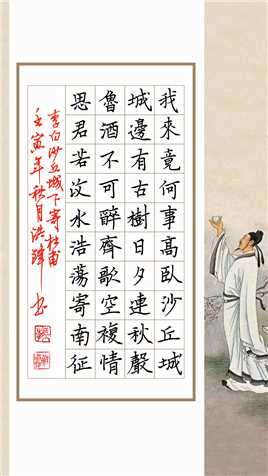 我來竟何事高臥沙丘城
城邊有古樹日夕連秋聲
魯酒不可醉齊歌空複情
思君若汶水浩蕩寄南征
李白沙丘城下寄杜甫
壬寅年秋月洪 书